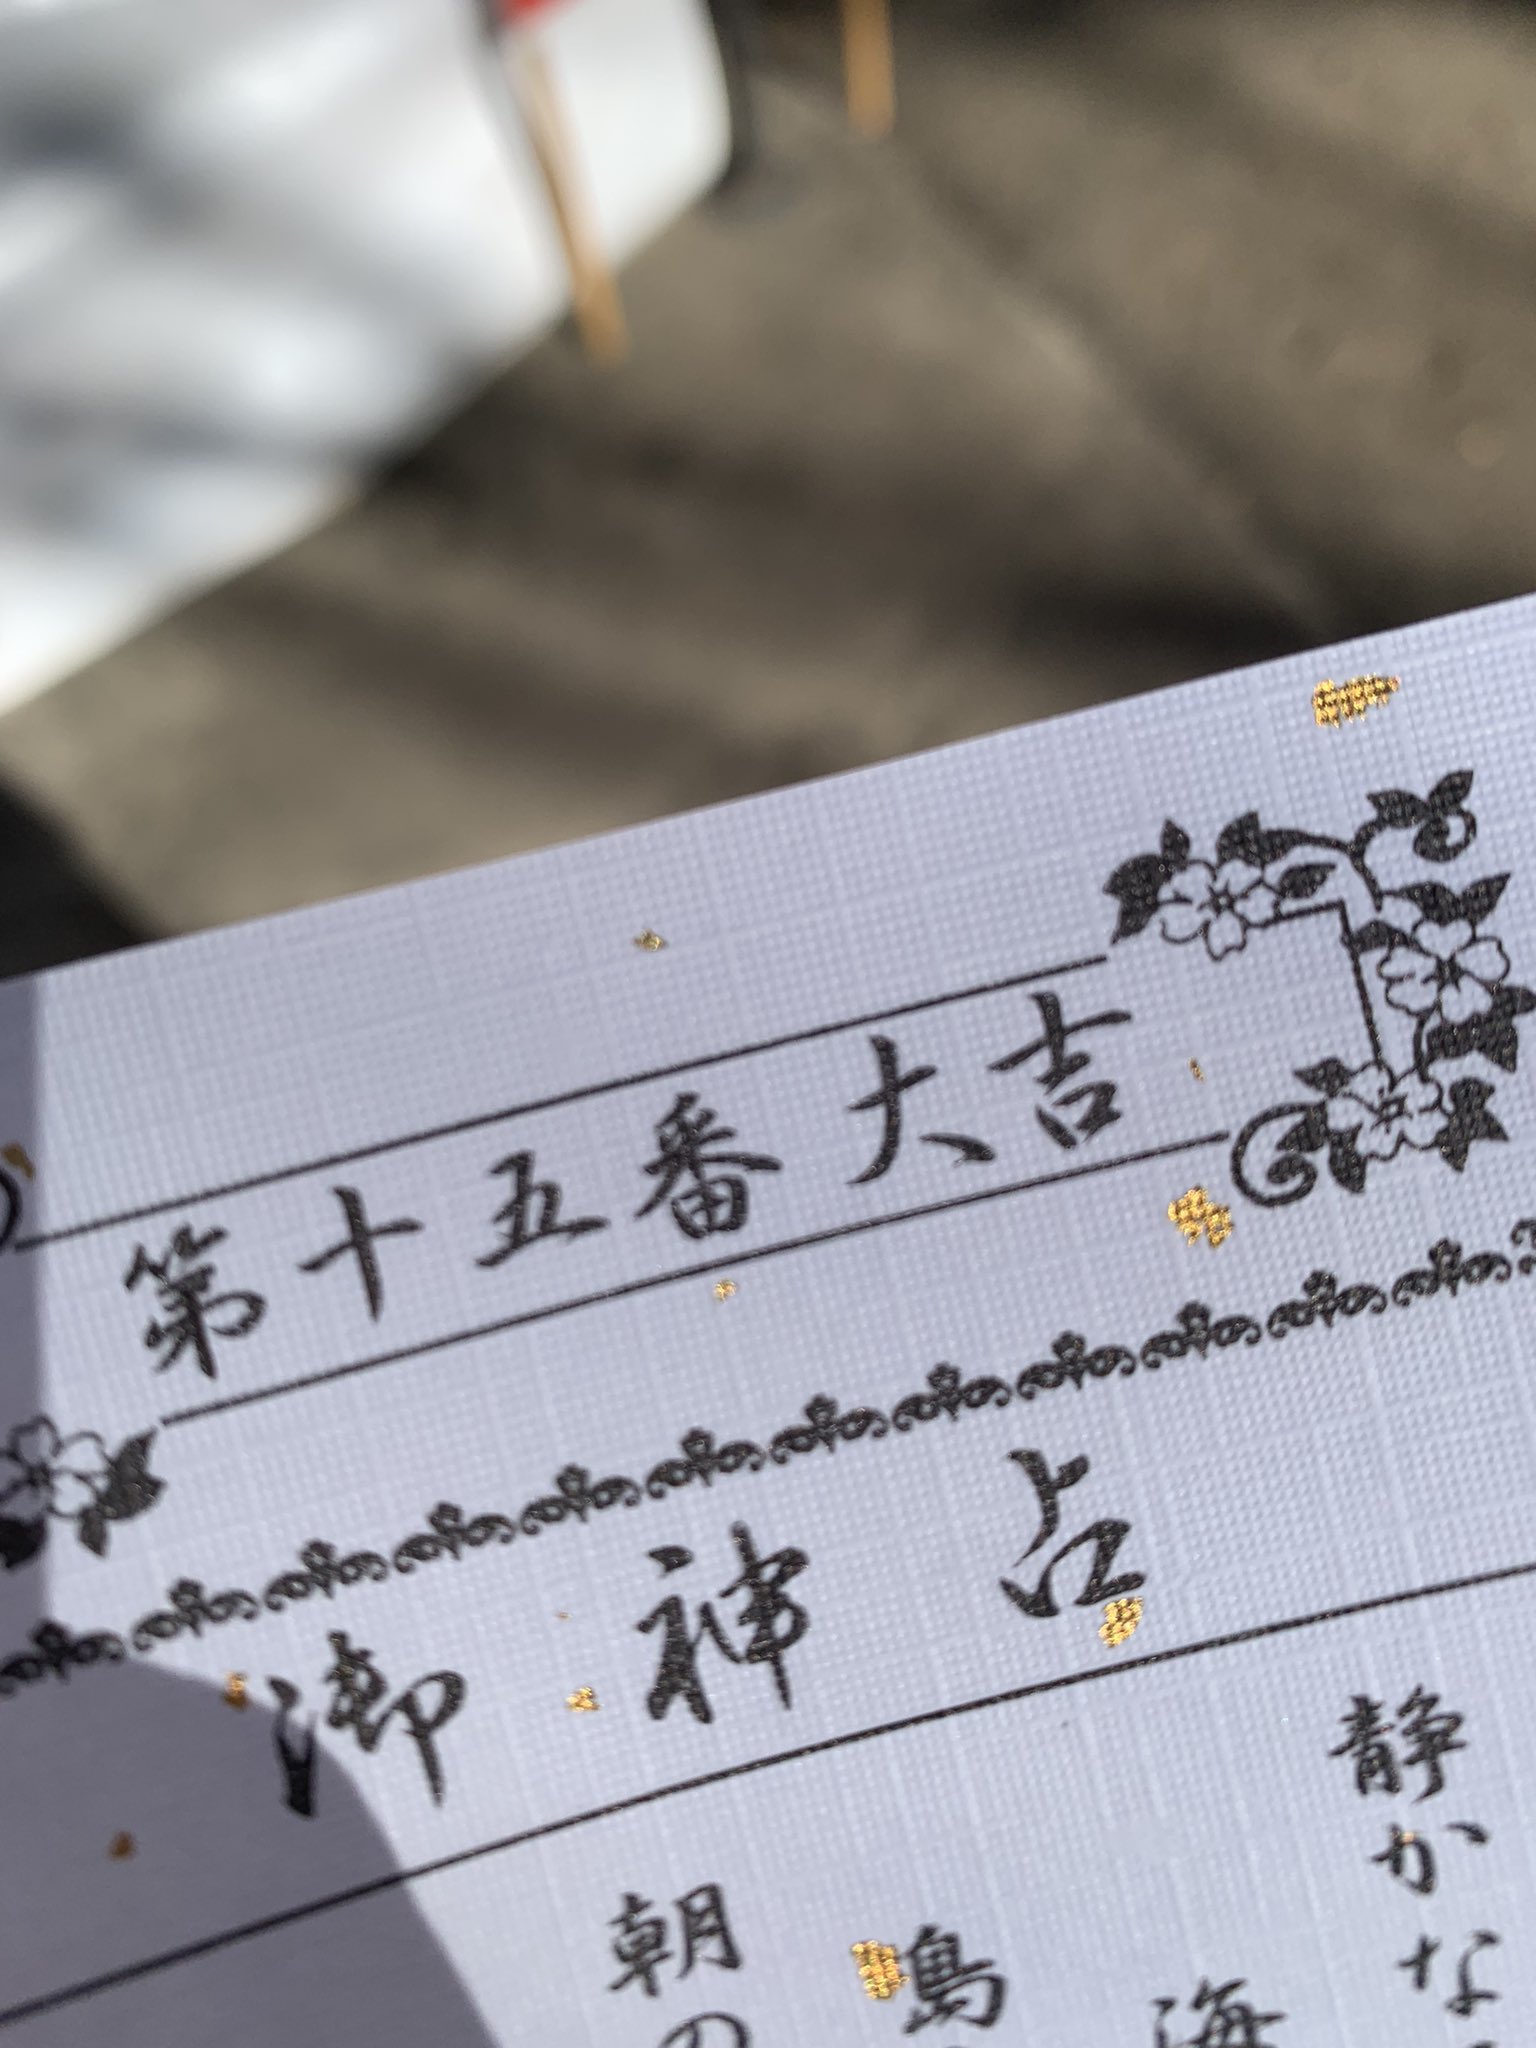 第十五番 大吉
御神占
静かな
海
島
朝の